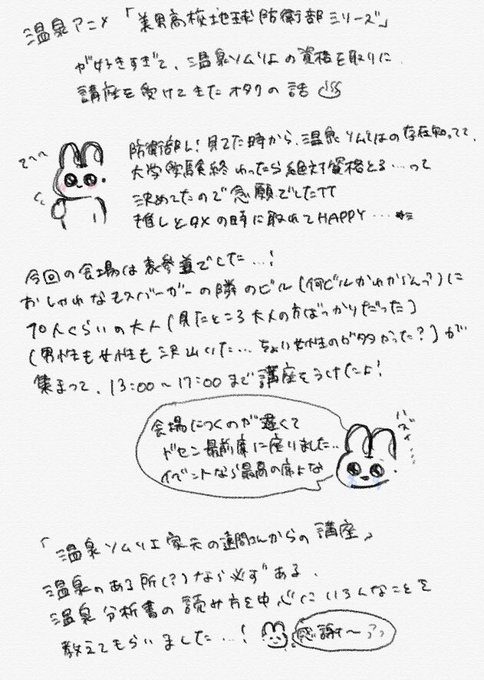 温泉アニメ「美男高校地球防衛部シリーズ」
が好きすぎて、温泉ソムリエの資格を取りに
講座を受けてきたオタクの話♨
てへへ
防衛部L!見てた時から、温泉ソムリエの存在知ってて、
大学受験終わったら絶対資格とる…って
決めてたので念願でしたTT
推しと同い年の時に取れてHAPPY…
今回の会場は表参道でした…!
おしゃれなモスバーガーの隣のビル(何ビルかわからんっ?)に
70人くらいの大人(見たところ大人の方ばっかりだった)
(男性も女性も沢山いた…ちょい女性のが多かった?)が
集まって、13:00〜17:00まで講座をうけたよ!
会場につくのが遅くて
ドセン最前席に座りました…
イベントなら最高の席よな
「温泉ソムリエ家元の遠間さんからの講座」
温泉のある所(?)なら必ずある、
温泉分析書の読み方を中心にいろんなことを
教えてもらいました…!
感謝〜